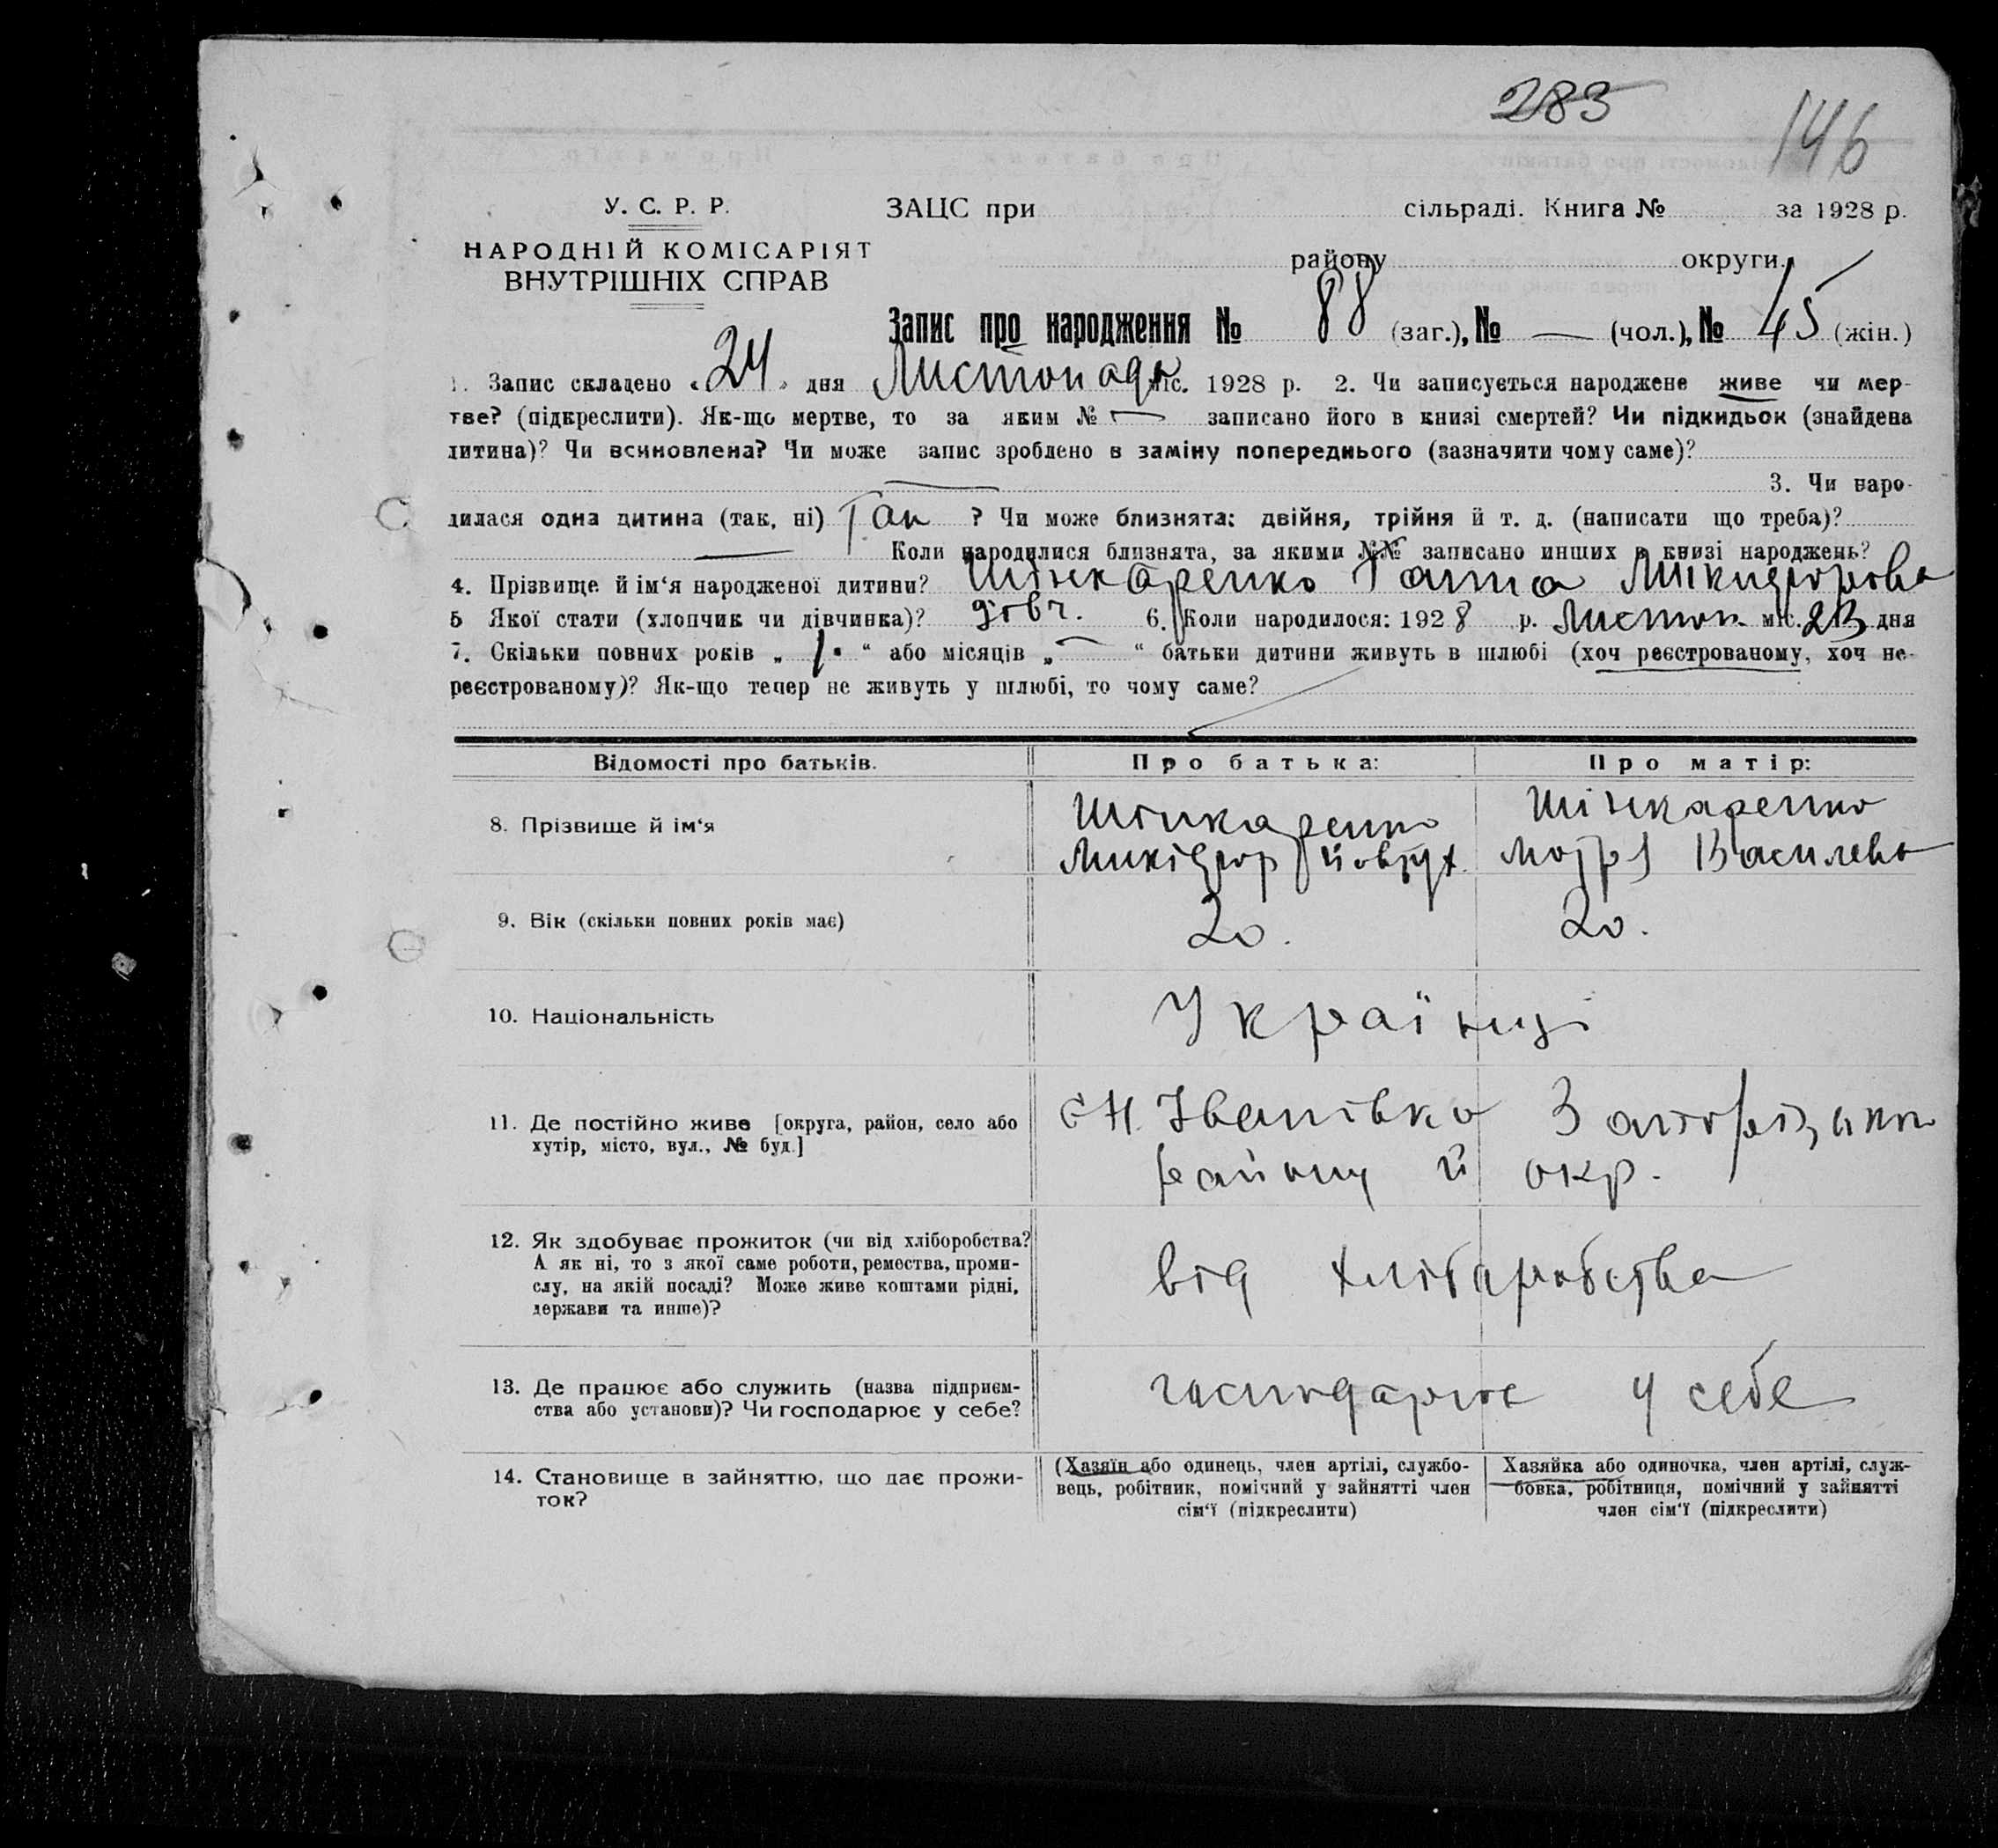 283
146
У. С. Р. Р.
НАРОДНІЙ КОМІСАРІЯТ
ВНУТРІШНІХ СПРАВ
ЗАЦС при сільраді. Книга № за 1928 р.
району округи.
Запис про народження № 88 (заг.), № — (чол.), № 45 (жін.)
1. Запис складено «24» дня Листопада міс. 1928 р. 2. Чи записується народжене живе чи мер-
тве? (підкреслити). Як-що мертве, то за яким № — записано його в книзі смертей? Чи підкидьок (знайдена
дитина)? Чи всиновлена? Чи може запис зроблено в заміну попереднього (зазначити чому саме)?
— 3. Чи наро-
дилася одна дитина (так, ні) Так ? Чи може близнята: двійня, трійня й т. д. (написати що треба)?
— Коли народилися близнята, за якими №№ записано инших в книзі народжень?
4. Прізвище й ім‘я народженої дитини? Шінкаренко Ганна Микифорова
5 Якої стати (хлопчик чи дівчинка)? дівч. 6. Коли народилося: 1928 р. Листоп. міс. 23 дня
7. Скільки повних років „ 1 “ або місяців „ — “ батьки дитини живуть в шлюбі (хоч реєстрованому, хоч не-
реєстрованому)? Як-що тепер не живуть у шлюбі, то чому саме?
Відомості про батьків.
Про батька:
Про матір:
8. Прізвище й ім‘я
Шінкаренко
Микіфор
Шінкаренко
Василева
9. Вік (скільки повних років має)
20.
20.
10. Національність
Українці
11. Де постійно живе [округа, район, село або
хутір, місто, вул., № буд.]
Н. Іванівка Запорізьк
району й окр.
12. Як здобуває прожиток (чи від хліборобства?
А як ні, то з якої саме роботи, ремества, проми-
слу, на якій посаді? Може живе коштами рідні,
держави та инше)?
від хліборобства
13. Де працює або служить (назва підприєм-
ства або установи)? Чи господарює у себе?
господарює у себе
14. Становище в зайняттю, що дає прожи-
ток?
(Хазяїн або одинець, член артілі, службо-
вець, робітник, помічний у зайнятті член
сім‘ї (підкреслити)
Хазяйка або одиночка, член артілі, служ-
бовка, робітниця, помічний у зайнятті
член сім‘ї (підкреслити)